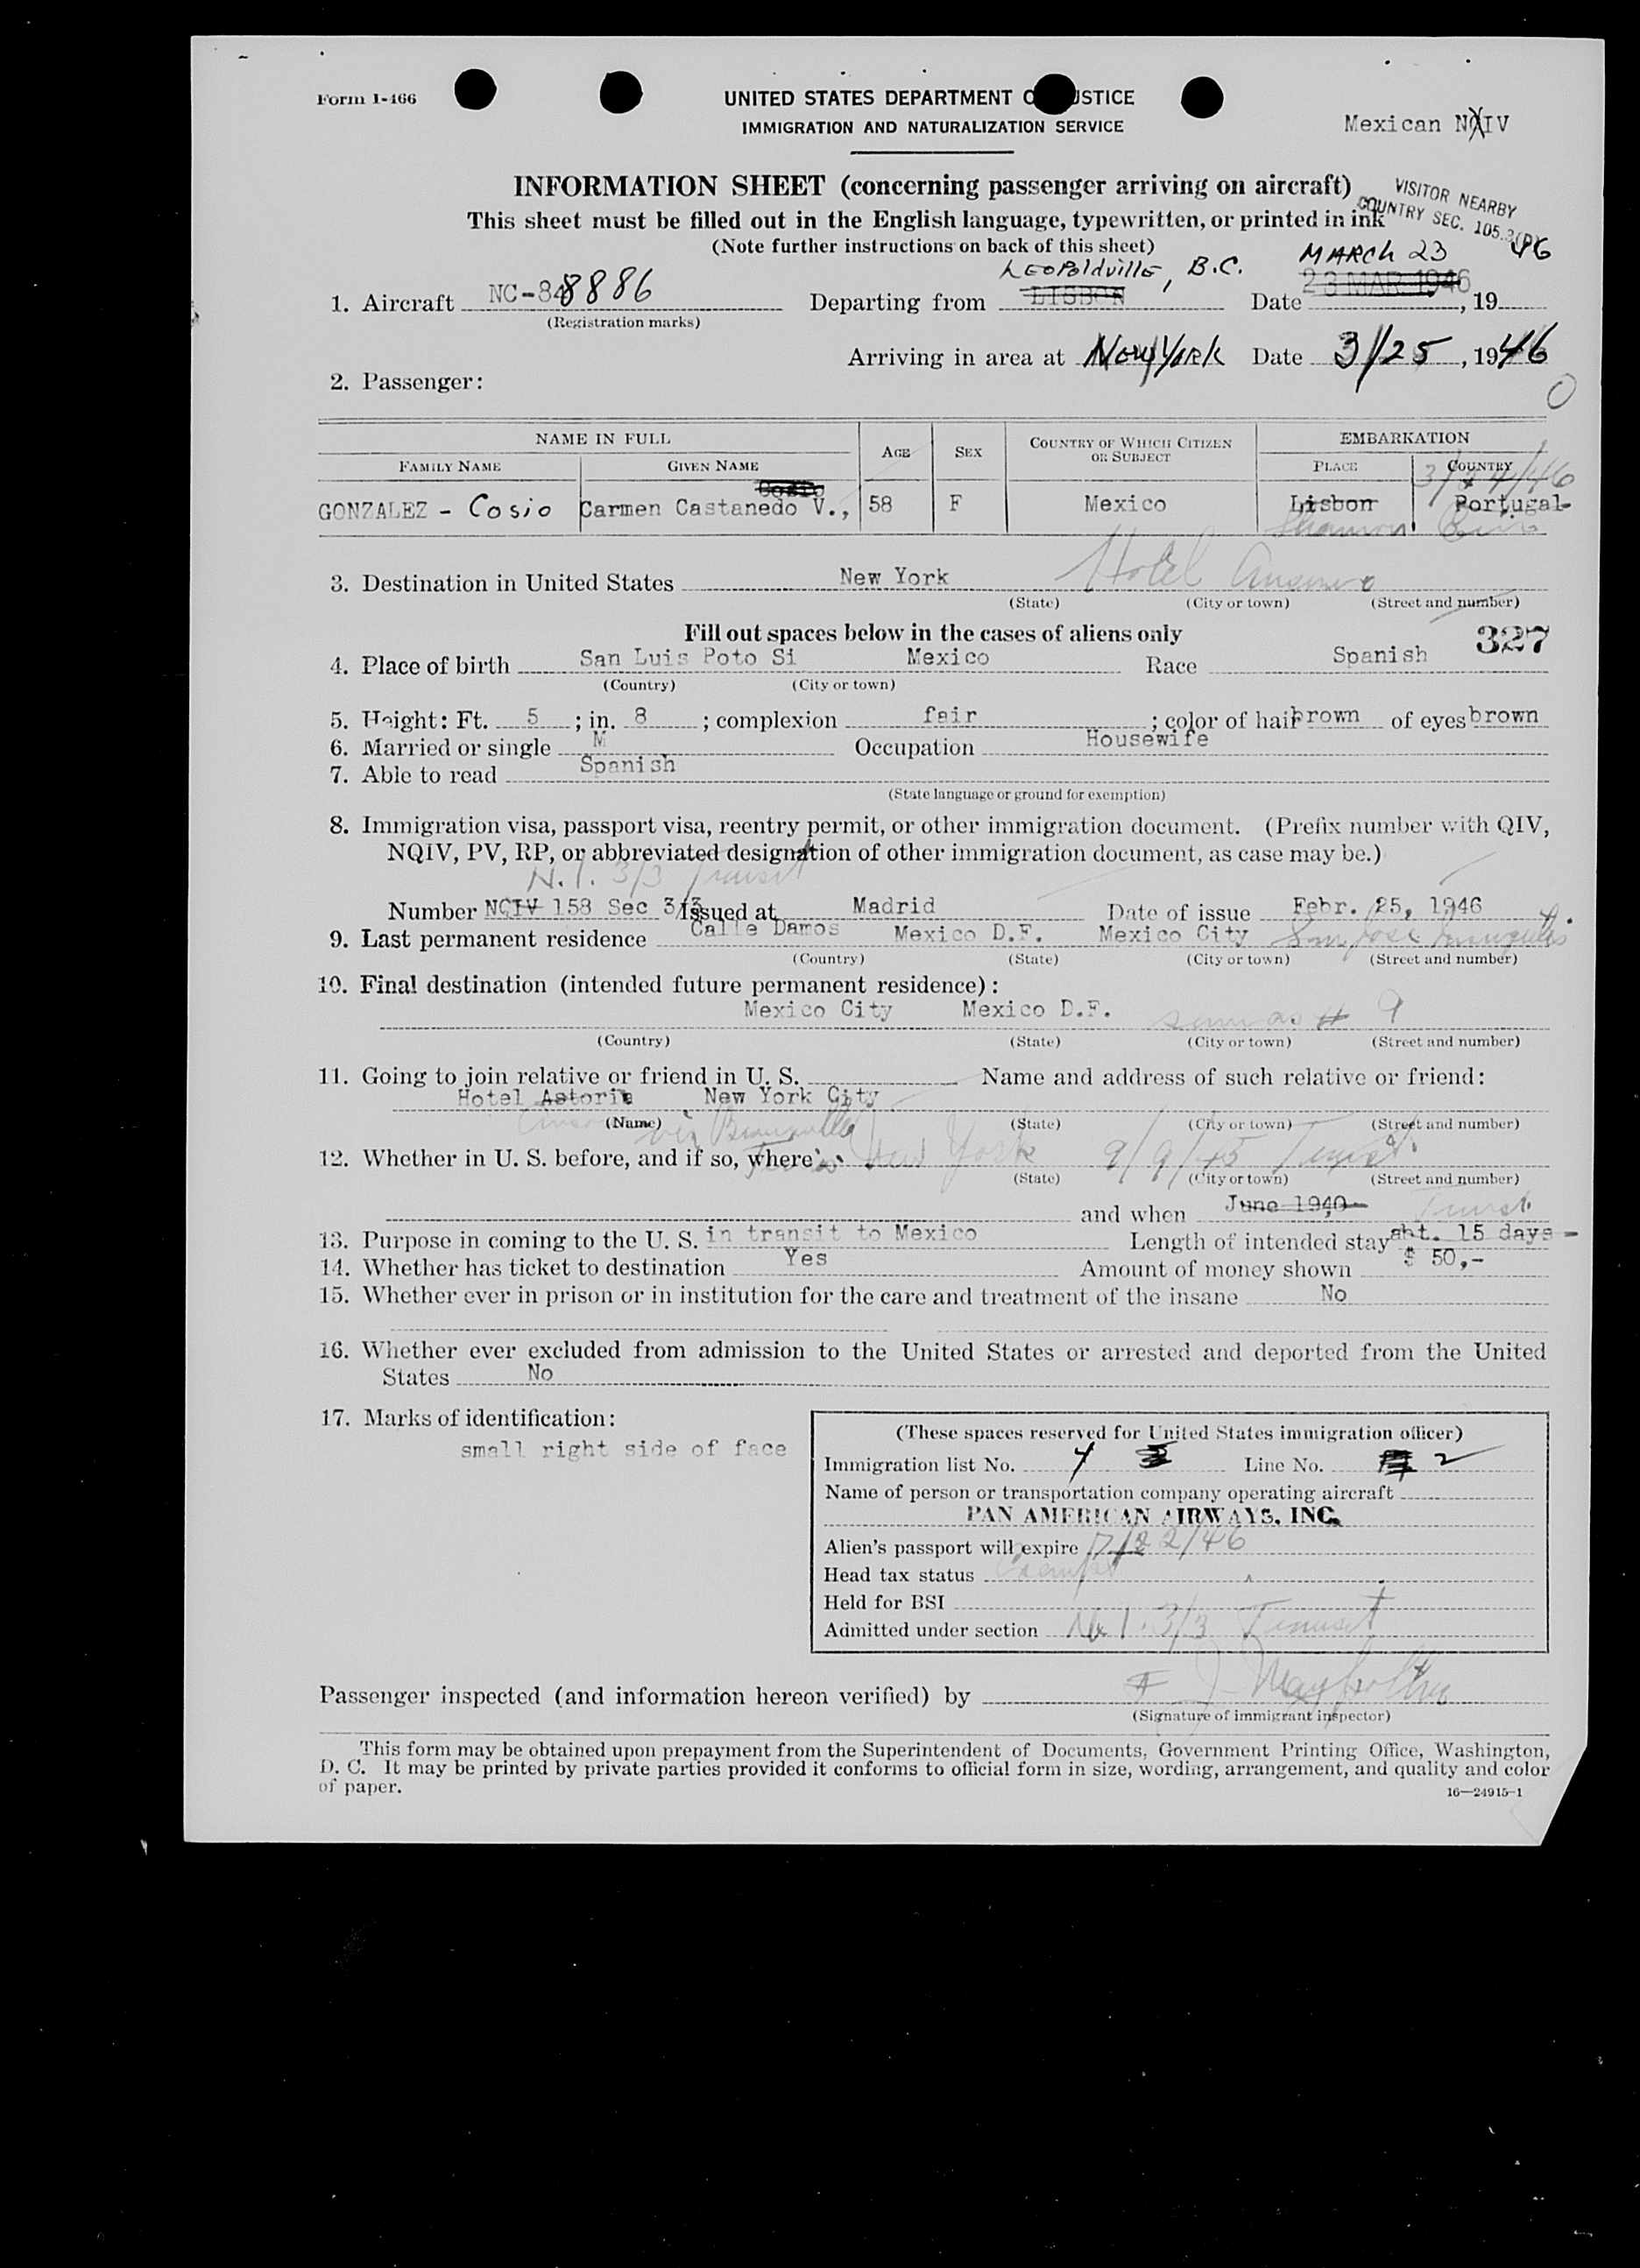 Form I-466
UNITED STATES DEPARTMENT O USTICE
IMMIGRATION AND NATURALIZATION SERVICE
Mexican NQIV
INFORMATION SHEET (concerning passenger arriving on aircraft)
VISITOR NEARBY
COUNTRY SEC. 105.3(P)
This sheet must be filled out in the English language, typewritten, or printed in ink
(Note further instructions on back of this sheet)
LEOPOLDVILLE, B.C. MARCH 23 46
1. Aircraft NC-88886 Departing from LISBON Date 23 MAR 1946, 19
(Registration marks)
Arriving in area at New York Date 3/25, 1946
2. Passenger:
0
NAME IN FULL AGE SEX COUNTRY OF WHICH CITIZEN OR SUBJECT EMBARKATION
FAMILY NAME GIVEN NAME PLACE COUNTRY
3/24/46
Cosio
GONZALEZ - Cosio Carmen Castanedo V., 58 F Mexico Lisbon Portugal
Shannon
3. Destination in United States New York Hotel
(State) (City or town) (Street and number)
Fill out spaces below in the cases of aliens only
327
4. Place of birth San Luis Poto Si Mexico Race Spanish
(Country) (City or town)
5. Height: Ft. 5; in. 8; complexion fair; color of hair brown of eyes brown
6. Married or single M Occupation Housewife
7. Able to read Spanish
(State language or ground for exemption)
8. Immigration visa, passport visa, reentry permit, or other immigration document. (Prefix number with QIV,
NQIV, PV, RP, or abbreviated designation of other immigration document, as case may be.)
N.I. 3/3 Transit
Number NQIV 158 Sec 3/3 Issued at Madrid Date of issue Febr. 25, 1946
9. Last permanent residence Calle Damos Mexico D.F. Mexico City San Jose
(Country) (State) (City or town) (Street and number)
10. Final destination (intended future permanent residence):
Mexico City Mexico D.F. same as # 9
(Country) (State) (City or town) (Street and number)
11. Going to join relative or friend in U. S. Name and address of such relative or friend:
Hotel Astoria New York City
(Name) (State) (City or town) (Street and number)
via Brownsville
12. Whether in U. S. before, and if so, where New York 9/9/45 Transit
(State) (City or town) (Street and number)
and when June 1940 Transit
13. Purpose in coming to the U. S. in transit to Mexico Length of intended stay abt. 15 days -
14. Whether has ticket to destination Yes Amount of money shown $ 50,-
15. Whether ever in prison or in institution for the care and treatment of the insane No
16. Whether ever excluded from admission to the United States or arrested and deported from the United
States No
17. Marks of identification:
small right side of face
(These spaces reserved for United States immigration officer)
Immigration list No. 4 Line No. 2
Name of person or transportation company operating aircraft
PAN AMERICAN AIRWAYS, INC.
Alien's passport will expire 7/22/46
Head tax status Exempt
Held for BSI
Admitted under section N.I. 3/3 Transit
Passenger inspected (and information hereon verified) by
(Signature of immigrant inspector)
This form may be obtained upon prepayment from the Superintendent of Documents, Government Printing Office, Washington,
D. C. It may be printed by private parties provided it conforms to official form in size, wording, arrangement, and quality and color
of paper.
16—24915-1